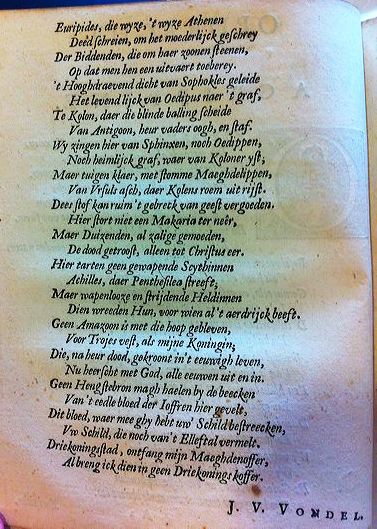 Euripides, die wyze, 't wyze Athenen
Deed schreien, om het moederlijck geschrey
Der Biddenden, die om haer zoonen steenen,
Op dat men hen een uitvaert toeberey.
't Hooghdraevend dicht van Sophokles geleide
Het levend lijck van Oedipus naer 't graf,
Te Kolon, daer die blinde balling scheide
Van Antigoon, heur vaders oogh, en staf.
Wy zingen hier van Sphinxen, noch Oedippen,
Noch heimlijck graf, waer van Koloner yst;
Maer tuigen klaer, met stomme Maeghdelippen,
Van Ursuls asch, daer Kolens roem uit rijst.
Dees stof kan ruim 't gebreck van geest vergoeden.
Hier stort niet een Makaria ter neêr,
Maer Duizenden, al zalige gemoeden,
De dood getroost, alleen tot Christus eer.
Hier tarten geen gewapende Scythinnen
Achilles, daer Penthesilea streeft;
Maer wapenlooze en strijdende Heldinnen
Dien wreeden Hun, voor wien al 't aerdrijck beeft.
Geen Amazoon is met die hoop gebleven,
Voor Trojes vest, als mijne Koningin;
Die, na heur dood, gekroont in't eeuwigh leven,
Nu heerscht met God, alle eeuwen uit en in.
Geen Hengstebron magh haelen by de beecken
Van 't eedle bloed der Ioffren hier gevelt,
Dit bloed, waer mee ghy hebt uw' Schild bestreecken,
Uw Schild, die noch van't Elleftal vermelt.
Driekoningstad, ontfang mijn Maeghdenoffer,
Al breng ick dien in geen Driekonings koffer.
J. V. VONDEL.